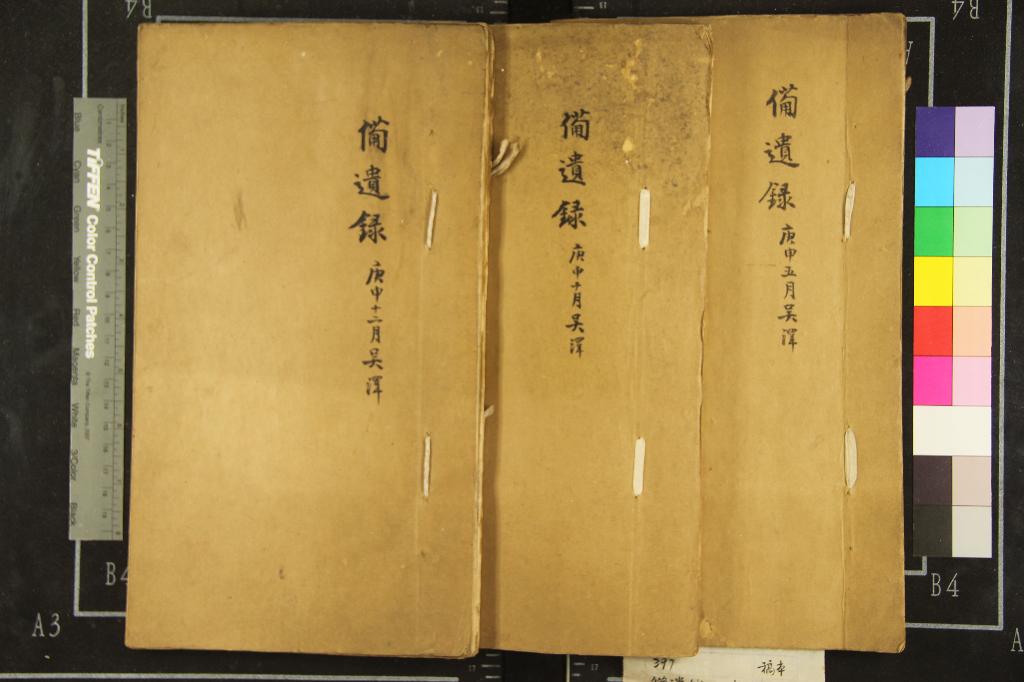 備遺録 庚申五月吴澤
備遺録 庚申十月吴澤
備遺録 庚申十二月吴澤
397
稿本
TIFFEN Color Control Patches
Blue Cyan Green Yellow Red Magenta White 3/Color Black
Centimetres
Inches
© The Tiffen Company, 2007
B4
B4
B4
B4
A3
A
A